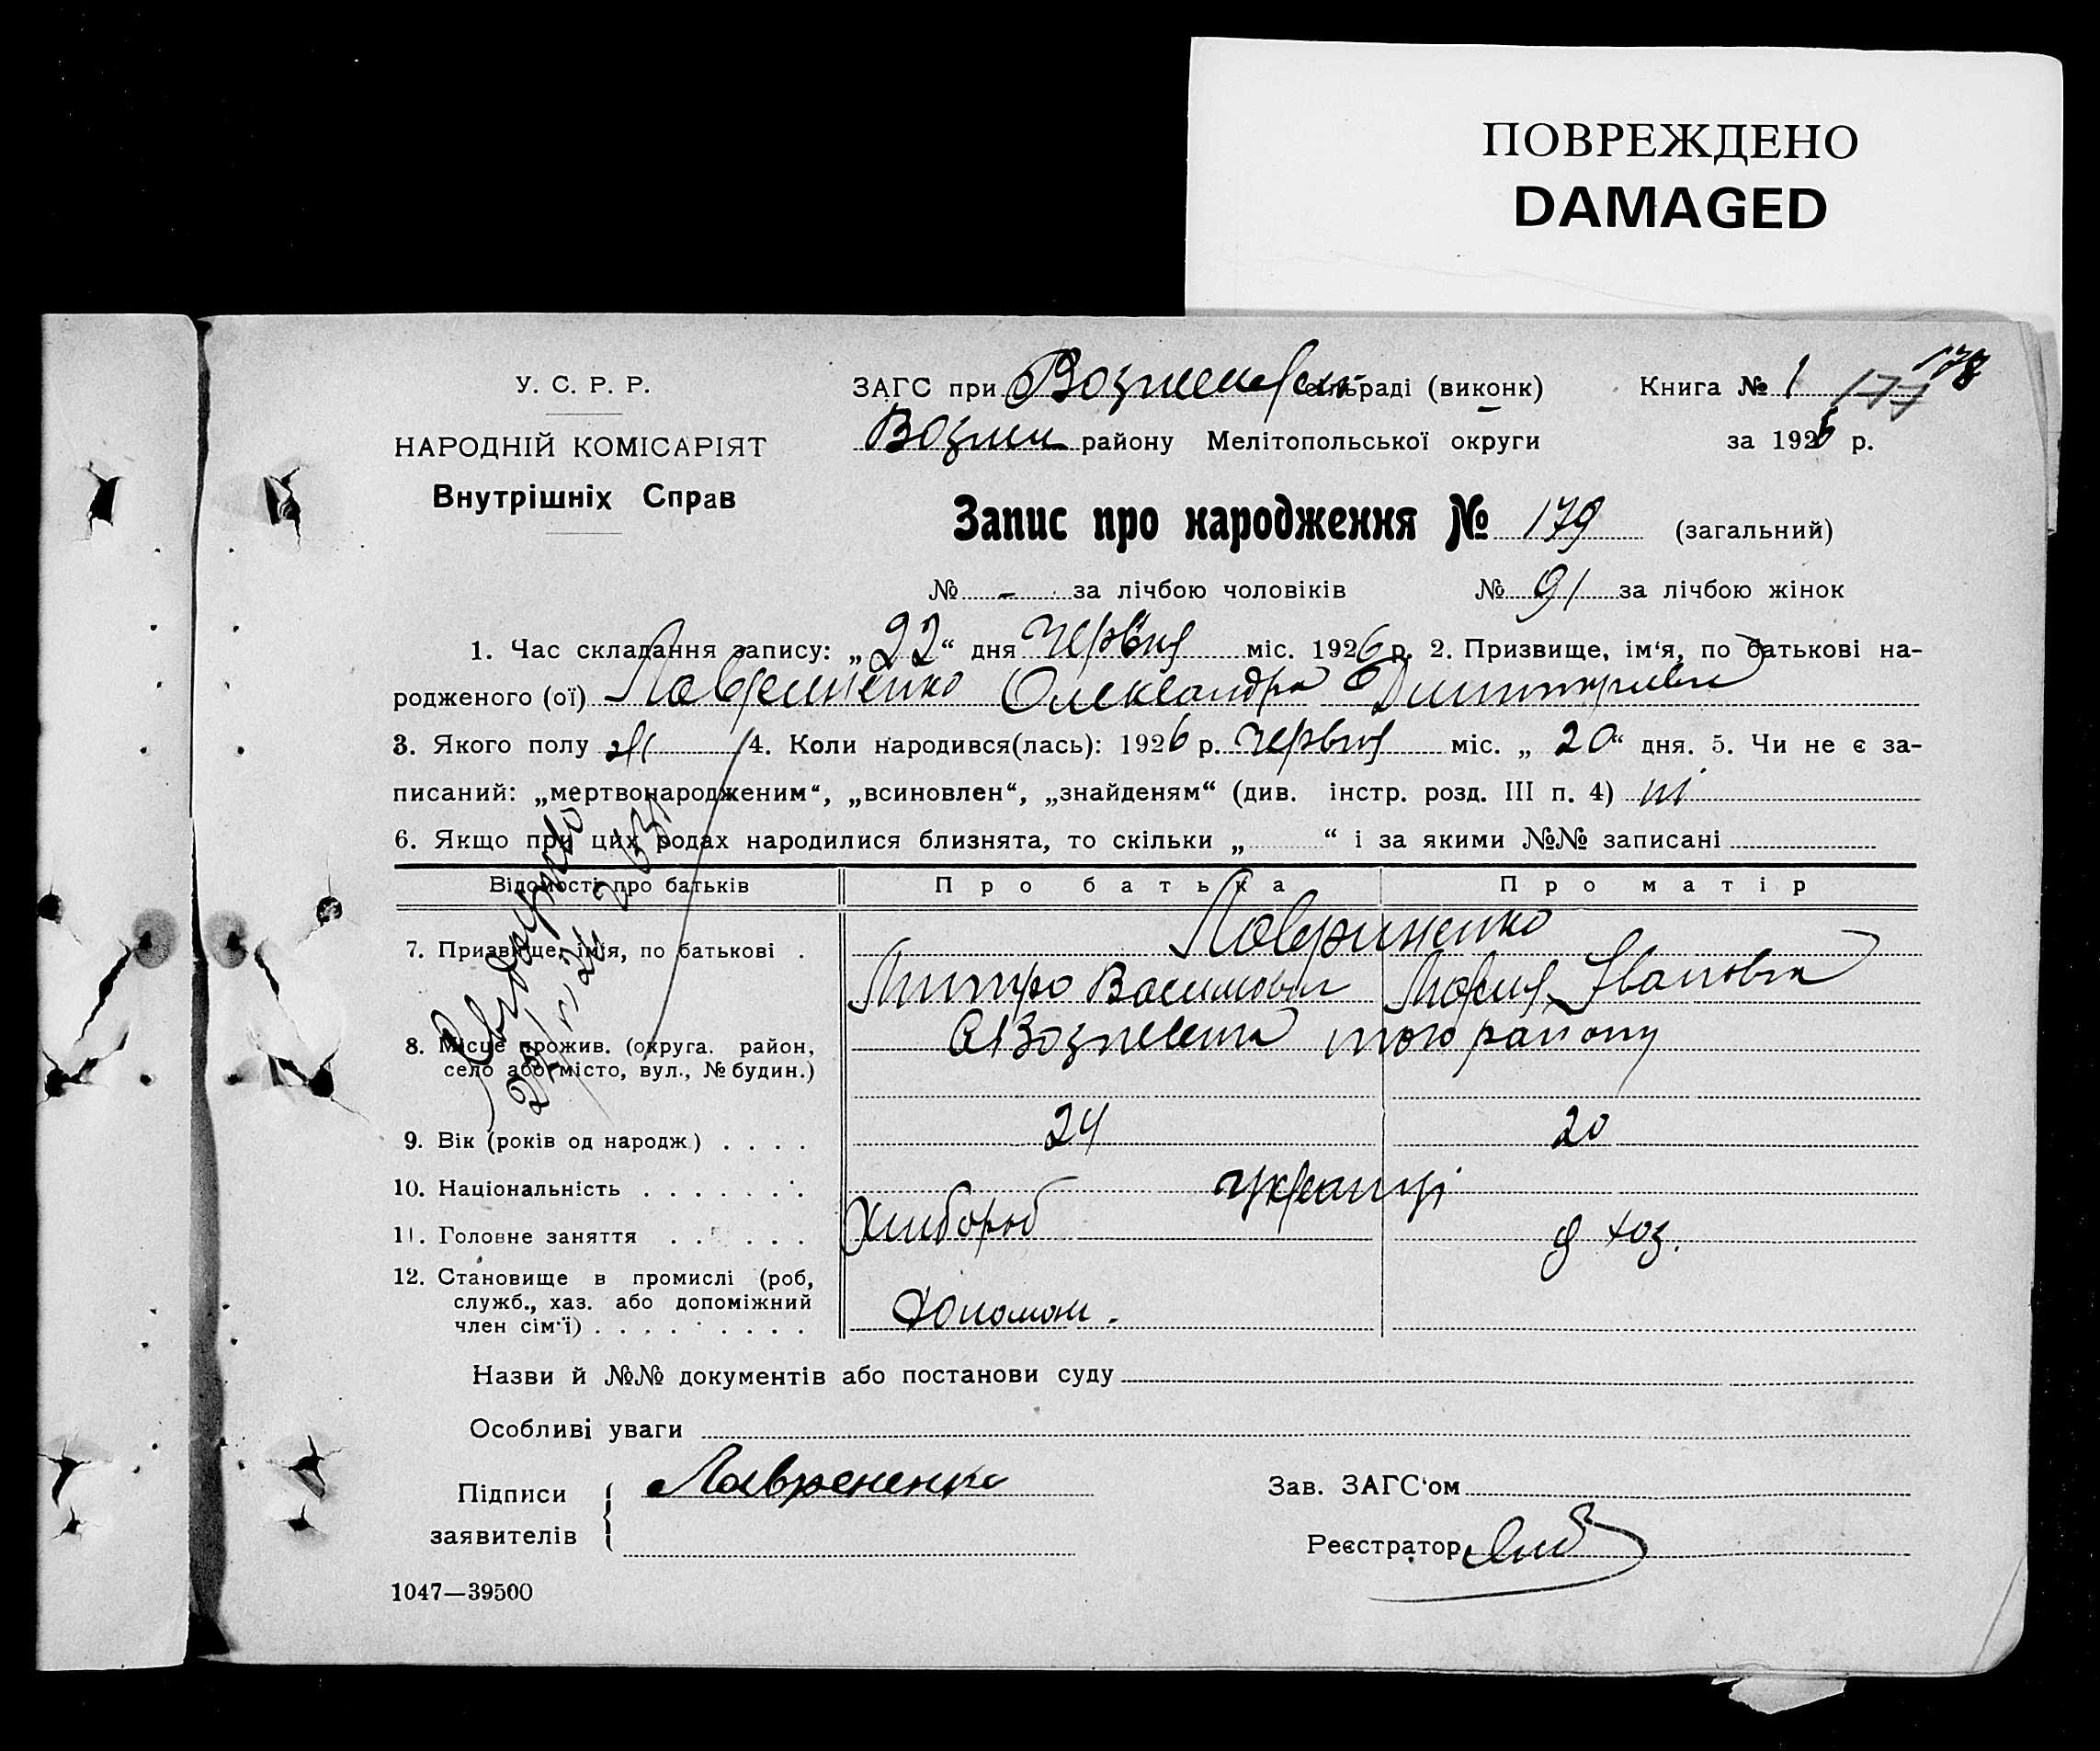 ПОВРЕЖДЕНО
DAMAGED
У. С. Р. Р.
НАРОДНІЙ КОМІСАРІЯТ
Внутрішніх Справ
ЗАГС при Вознесенськ сільраді (виконк) Книга № 1 177 178
Возник району Мелітопольської округи за 1926 р.
Запис про народження № 179 (загальний)
№ - за лічбою чоловіків № 91 за лічбою жінок
1. Час складання запису: „22“ дня червня міс. 1926 р. 2. Призвище, ім‘я, по батькові на-
родженого (ої) Лавриненко Олександра Дмитриевна
3. Якого полу ж 4. Коли народився(лась): 1926 р. червня міс. „20“ дня. 5. Чи не є за-
писаний: „мертвонародженим“, „всиновлен“, „знайденям“ (див. інстр. розд. III п. 4) ні
6. Якщо при цих родах народилися близнята, то скільки „ “ і за якими №№ записані
Відомості про батьків Про батька Про матір
7. Призвище, ім‘я, по батькові . Лавриненко
Митро Васильович Мария Івановна
8. Місце прожив. (округа. район, с Вознесенка того району
село або місто, вул., № будин.)
9. Вік (років од народж.) . . . . 24 20
10. Національність . . . . . . . українці
11. Головне заняття . . . . . . хлібороб д хоз.
12. Становище в промислі (роб,
служб., хаз. або допоміжний допомож.
член сім‘ї) . . . . . . . . .
Назви й №№ документів або постанови суду
Особливі уваги
Підписи Лаврененко Зав. ЗАГС‘ом
заявителів Реєстратор
1047—39500